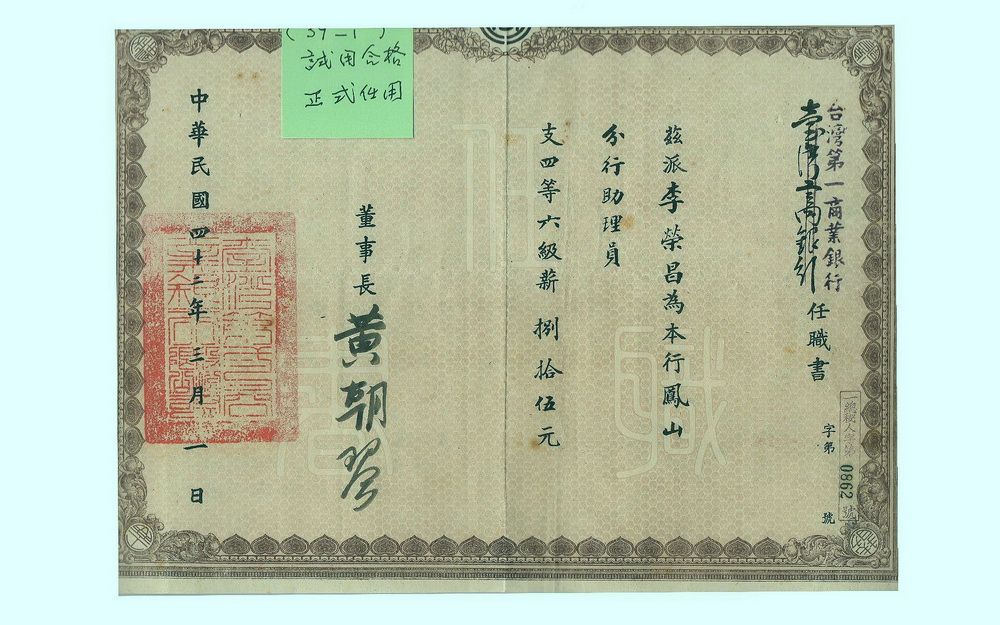 試用合格
正式任用
台灣第一商業銀行
任職書
一總秘人字第0862號
字第 號
茲派李榮昌為本行鳳山
分行助理員
支四等六級薪捌拾伍元
董事長黃朝琴
中華民國四十三年三月一日